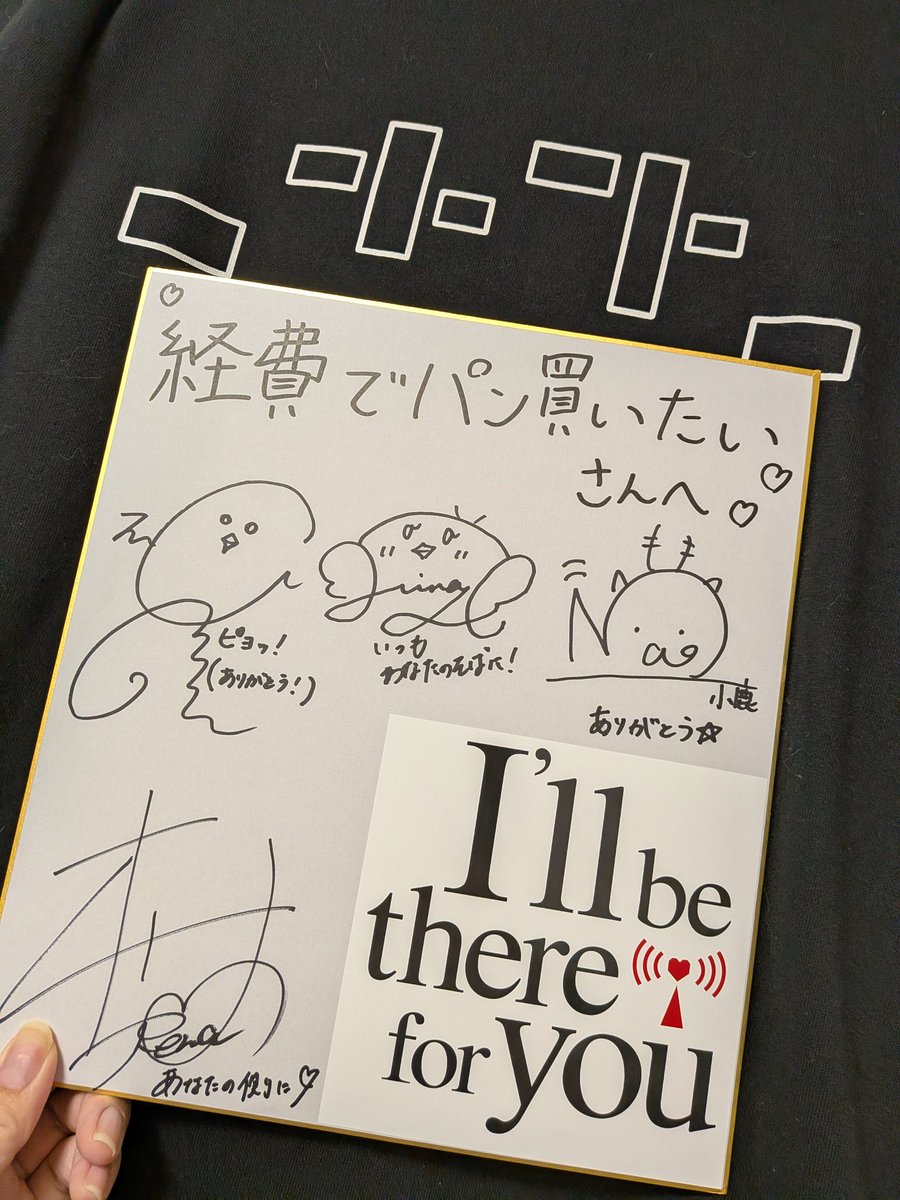 経費でパン買いたい
さんへ
ピヨっ！
(ありがとう！)
いつも
あなたのそばに！
Na
小鹿
ありがとう☆
Rena
あなたの便りに
I'll be
there
for you